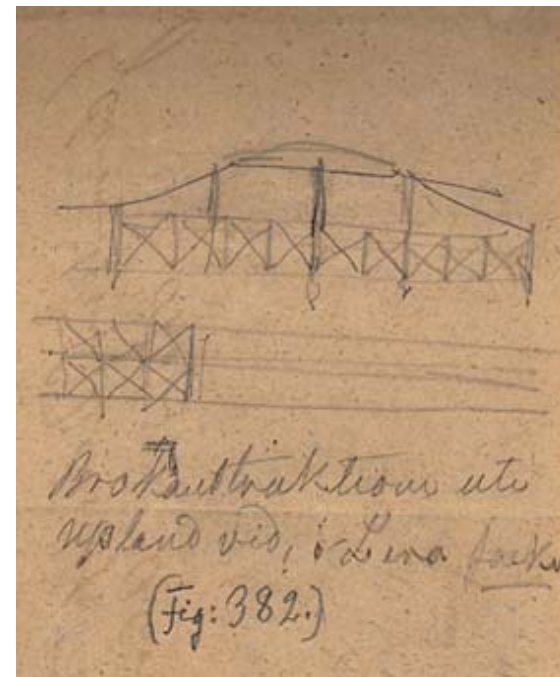 Brokonstruktion uti
upland vid, i Lena
(Fig: 382.)